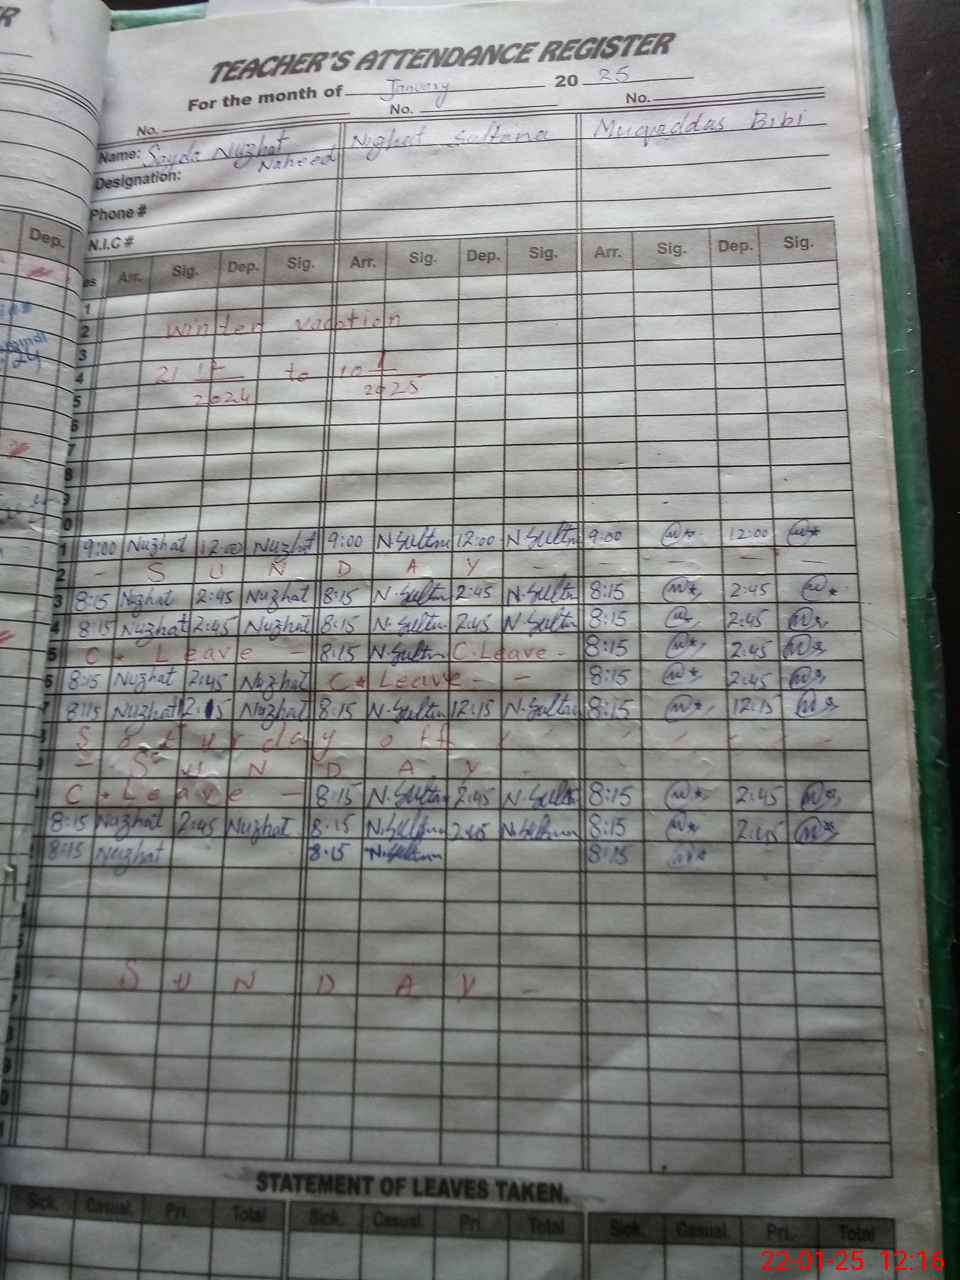 TEACHER'S ATTENDANCE REGISTER
For the month of January 20 25
No. No. No.
Name: Sayda Nuzhat Naheed Nighat Sultana Muqaddas Bibi
Designation:
Phone #
N.I.C #
Dep.
es Arr. Sig. Dep. Sig. Arr. Sig. Dep. Sig. Arr. Sig. Dep. Sig.
1
2 Winter vacation
3
4 21 12 2024 to 10 1 2025
5
6
7
8
9
0
1 9:00 Nuzhat 12:00 Nuzhat 9:00 N.Sultan 12:00 N.Sultn 9:00 12:00
2 - S U N D A Y - - - - -
3 8:15 Nuzhat 2:45 Nuzhat 8:15 N.Sultn 2:45 N.Sultn 8:15 2:45
4 8:15 Nuzhat 2:45 Nuzhat 8:15 N.Sultn 2:45 N.Sultn 8:15 2:45
5 C. Leave - 8:15 N.Sultn C.Leave - 8:15 2:45
6 8:15 Nuzhat 2:45 Nuzhat C. Leave - - 8:15 2:45
7 8:15 Nuzhat 12:15 Nuzhat 8:15 N.Sultn 12:15 N.Sultan 8:15 12:15
Saturday off
- S U N D A Y -
C. Leave - 8:15 N.Sultan 2:45 N.Sultn 8:15 2:45
8:15 Nuzhat 2:45 Nuzhat 8:15 N.Sultan 2:45 N.Sultan 8:15 2:45
8:15 Nuzhat 8:15 N.Sultan 8:15
S U N D A Y -
STATEMENT OF LEAVES TAKEN.
Sick. Casual. Pri. Total Sick. Casual. Pri. Total Sick. Casual. Pri. Total
22-01-25 12:16